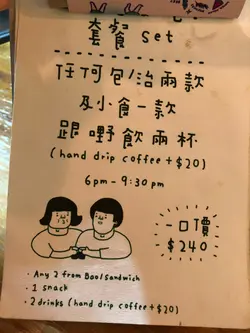 套餐 set
任何包/治兩款
及小食一款
跟嘢飲兩杯
(hand drip coffee +$20)
6pm - 9:30pm
一口價
$240
· Any 2 from Baol Sandwich
· 1 snack
· 2 drinks (hand drip coffee +$20)